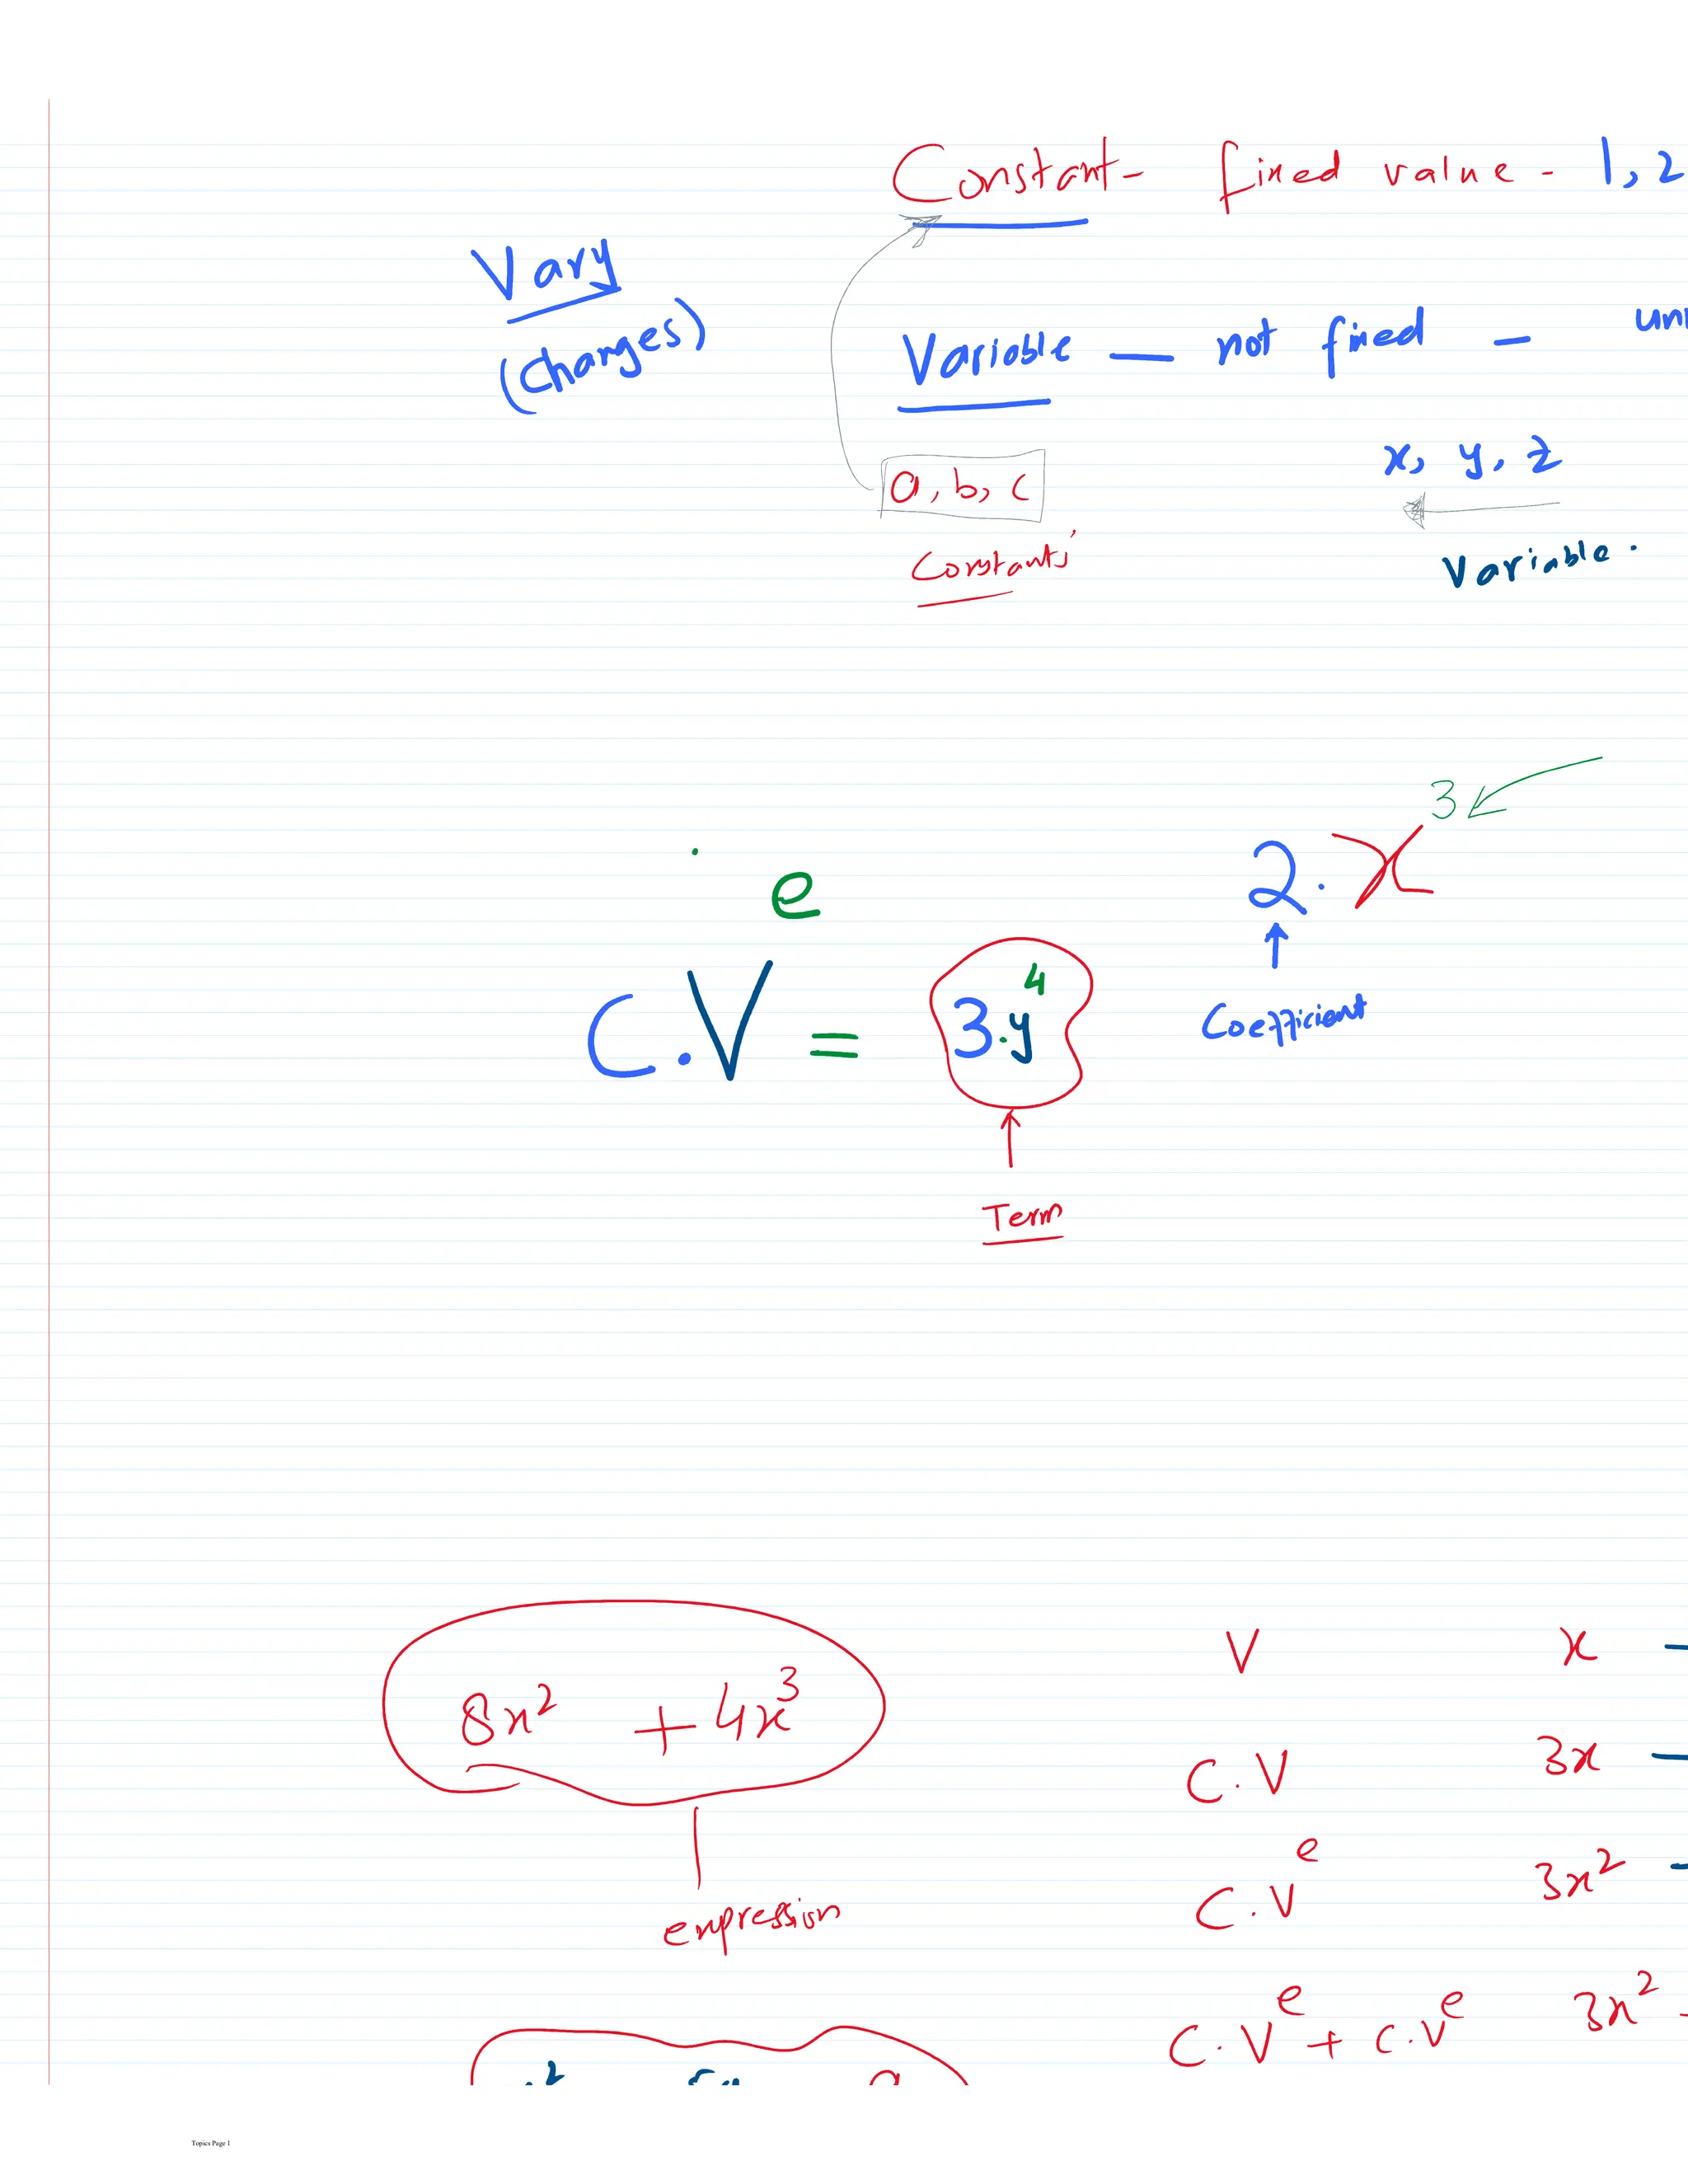 Constant - fixed value - 1, 2
Vary
(changes)
Variable — not fixed —
a, b, c
x, y, z
Constants
Variable.
2 . x^3
C.V^e = 3.y^4
Coefficient
Term
8x^2 + 4x^3
expression
V x
C.V 3x
C.V^e 3x^2
C.V^e + C.V^e 3x^2
Topics Page 1